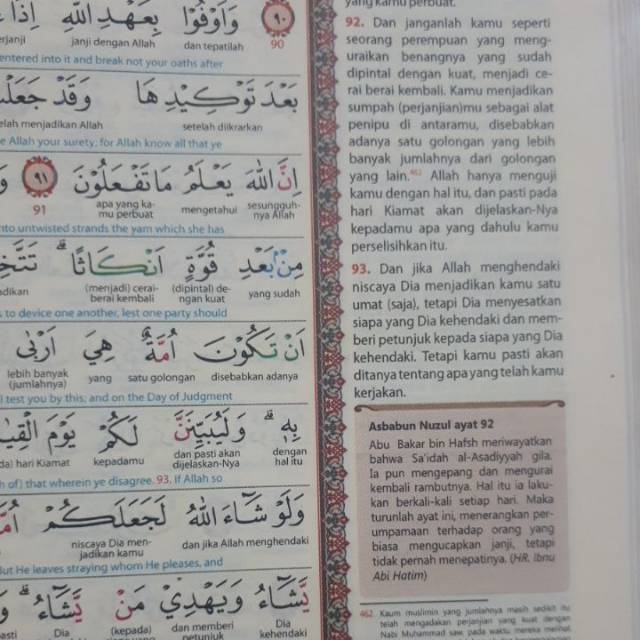 وَاَوْفُوْا بِعَهْدِ اللّٰهِ اِذَا
janji dengan Allah dan tepatilah 90
entered into it and break not your oaths after
بَعْدَ تَوْكِيْدِهَا وَقَدْ جَعَلْ
elah menjadikan Allah setelah diikrarkan
e Allah your surety; for Allah know all that ye
اِنَّ اللّٰهَ يَعْلَمُ مَا تَفْعَلُوْنَ ٩١
91 apa yang ka- mengetahui sesungguh-
mu perbuat nya Allah
nto untwisted strands the yarn which she has
مِنْۢ بَعْدِ قُوَّةٍ اَنْكَاثًا
adikan (menjadi) cerai- (dipintal) de- yang sudah
berai kembali ngan kuat
to device one another, lest one party should
اَنْ تَكُوْنَ اُمَّةٌ هِيَ اَرْبٰى
lebih banyak yang satu golongan disebabkan adanya
(jumlahnya)
l test you by this; and on the Day of Judgment
بِهٖ وَلَيُبَيِّنَنَّ لَكُمْ يَوْمَ الْقِيٰ
da) hari Kiamat kepadamu dan pasti akan dengan
dijelaskan-Nya hal itu
h of) that wherein ye disagree. 93. If Allah so
وَلَوْ شَاۤءَ اللّٰهُ لَجَعَلَكُمْ اُمَّ
niscaya Dia men- dan jika Allah menghendaki
jadikan kamu
But He leaves straying whom He pleases, and
يَّشَاۤءُ وَيَهْدِيْ مَنْ يَّشَاۤءُ
asti Dia (kepada) dan memberi Dia
petunjuk kehendaki
yang kamu perbuat.
92. Dan janganlah kamu seperti
seorang perempuan yang meng-
uraikan benangnya yang sudah
dipintal dengan kuat, menjadi ce-
rai berai kembali. Kamu menjadikan
sumpah (perjanjian)mu sebagai alat
penipu di antaramu, disebabkan
adanya satu golongan yang lebih
banyak jumlahnya dari golongan
yang lain.⁴⁶² Allah hanya menguji
kamu dengan hal itu, dan pasti pada
hari Kiamat akan dijelaskan-Nya
kepadamu apa yang dahulu kamu
perselisihkan itu.
93. Dan jika Allah menghendaki
niscaya Dia menjadikan kamu satu
umat (saja), tetapi Dia menyesatkan
siapa yang Dia kehendaki dan mem-
beri petunjuk kepada siapa yang Dia
kehendaki. Tetapi kamu pasti akan
ditanya tentang apa yang telah kamu
kerjakan.
Asbabun Nuzul ayat 92
Abu Bakar bin Hafsh meriwayatkan
bahwa Sa'idah al-Asadiyyah gila.
Ia pun mengepang dan mengurai
kembali rambutnya. Hal itu ia laku-
kan berkali-kali setiap hari. Maka
turunlah ayat ini, menerangkan per-
umpamaan terhadap orang yang
biasa mengucapkan janji, tetapi
tidak pernah menepatinya. (HR. Ibnu
Abi Hatim)
462. Kaum muslimin yang jumlahnya masih sedikit itu
telah mengadakan perjanjian yang kuat dengan
Nabi Muhammad saw. pada waktu mereka melihat